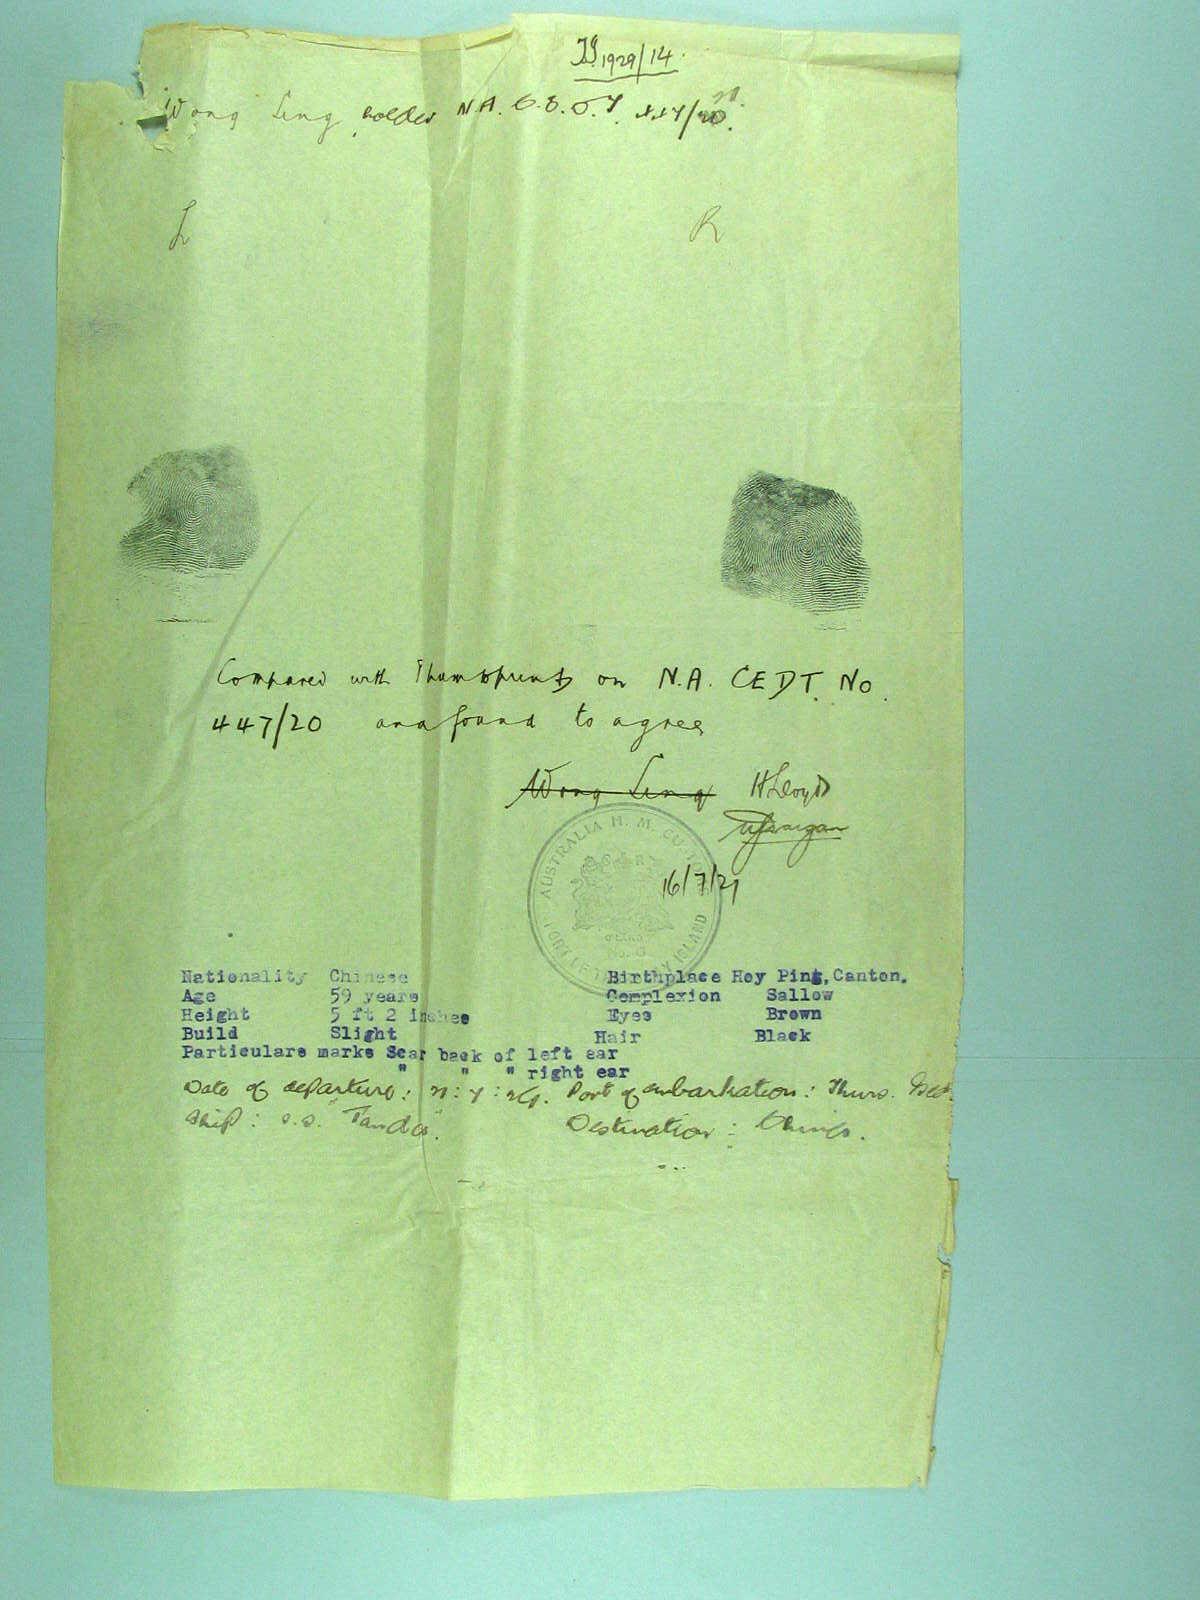 T.I. 1929/14.
Wong Ling holder N.A. C.E.D.T. 447/20.
L R
Compared with Thumbprints on N.A. CEDT. No.
447/20 and found to agree
Wong Ling H Lloyd
AUSTRALIA H. M. CUSTOMS
THURSDAY ISLAND
16/7/21
Nationality Chinese Birthplace Hoy Ping, Canton.
Age 59 years Complexion Sallow
Height 5 ft 2 inches Eyes Brown
Build Slight Hair Black
Particulars marks Scar back of left ear
" " " right ear
Date of departure: Port of embarkation: Thurs. Isld.
Ship: s.s. "Tanda". Destination: China.